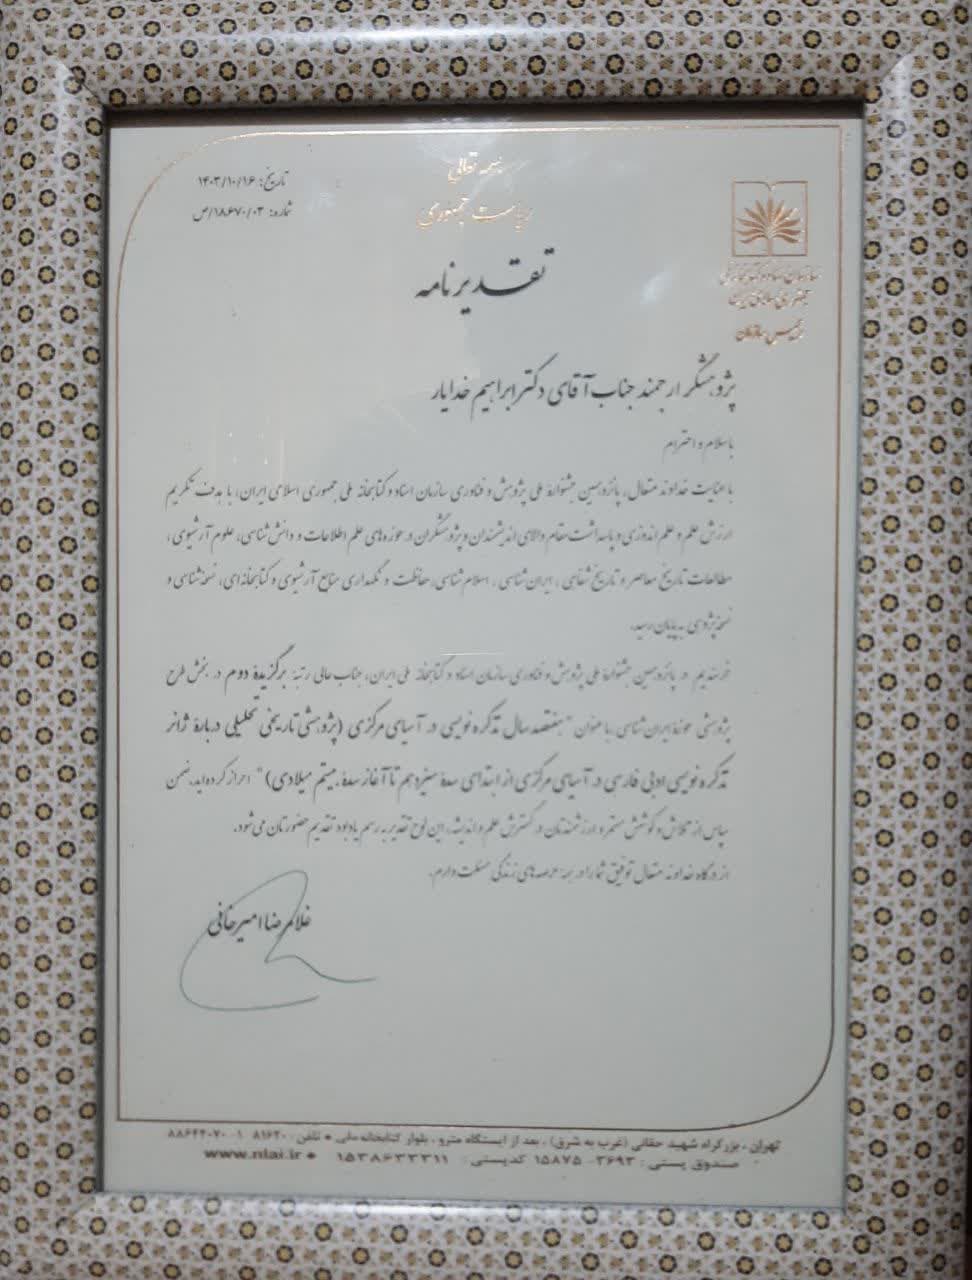 بسمه تعالی
ریاست جمهوری
تاریخ: ۱۴۰۳/۱۰/۱۶
شماره: ۱۸۶۷۰/۰۳/ص
سازمان اسناد و کتابخانه ملی
جمهوری اسلامی ایران
رئیس سازمان
تقدیرنامه
پژوهشگر ارجمند جناب آقای دکتر ابراهیم خدایار
با سلام و احترام
با عنایت خداوند متعال، پانزدهمین جشنوارهٔ ملی پژوهش و فناوری سازمان اسناد و کتابخانه ملی جمهوری اسلامی ایران، با هدف تکریم
ارزش علم و علم‌اندوزی و پاسداشت مقام والای اندیشمندان و پژوهشگران در حوزه‌های علم اطلاعات و دانش‌شناسی، علوم آرشیوی،
مطالعات تاریخ معاصر و تاریخ شفاهی، ایران‌شناسی، اسلام‌شناسی، حفاظت و نگهداری منابع آرشیوی و کتابخانه‌ای، نسخه‌شناسی و
نسخه‌پژوهی به پایان رسید.
خرسندیم در پانزدهمین جشنوارهٔ ملی پژوهش و فناوری سازمان اسناد و کتابخانه ملی ایران، جناب عالی رتبهٔ برگزیدهٔ دوم در بخش طرح
پژوهشی حوزهٔ ایران‌شناسی با عنوان "هفتصد سال تذکره‌نویسی در آسیای مرکزی (پژوهشی تاریخی تحلیلی دربارهٔ ژانر
تذکره‌نویسی ادبی فارسی در آسیای مرکزی از ابتدای سدهٔ سیزدهم تا آغاز سدهٔ بیستم میلادی)" احراز کرده‌اید. ضمن
سپاس از تلاش و کوشش مستمر و ارزشمندتان در گسترش علم و اندیشه، این لوح تقدیر به رسم یادبود تقدیم حضورتان می‌شود.
از درگاه خداوند متعال توفیق شما را در همهٔ عرصه‌های زندگی مسئلت دارم.
غلامرضا امیرخانی
تهران، بزرگراه شهید حقانی (غرب به شرق)، بعد از ایستگاه مترو، بلوار کتابخانه ملی • تلفن: ۸۱۶۲۰ ۱-۸۸۶۴۴۰۷۰
صندوق پستی: ۳۶۹۳-۱۵۸۷۵ کدپستی: ۱۵۳۸۶۳۳۳۱۱ • www.nlai.ir